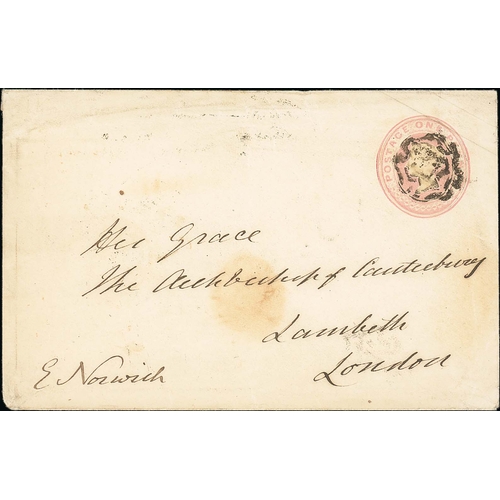 POSTAGE ONE PENNY
His Grace
The Archbishop of Canterbury
Lambeth
London
E Norwich